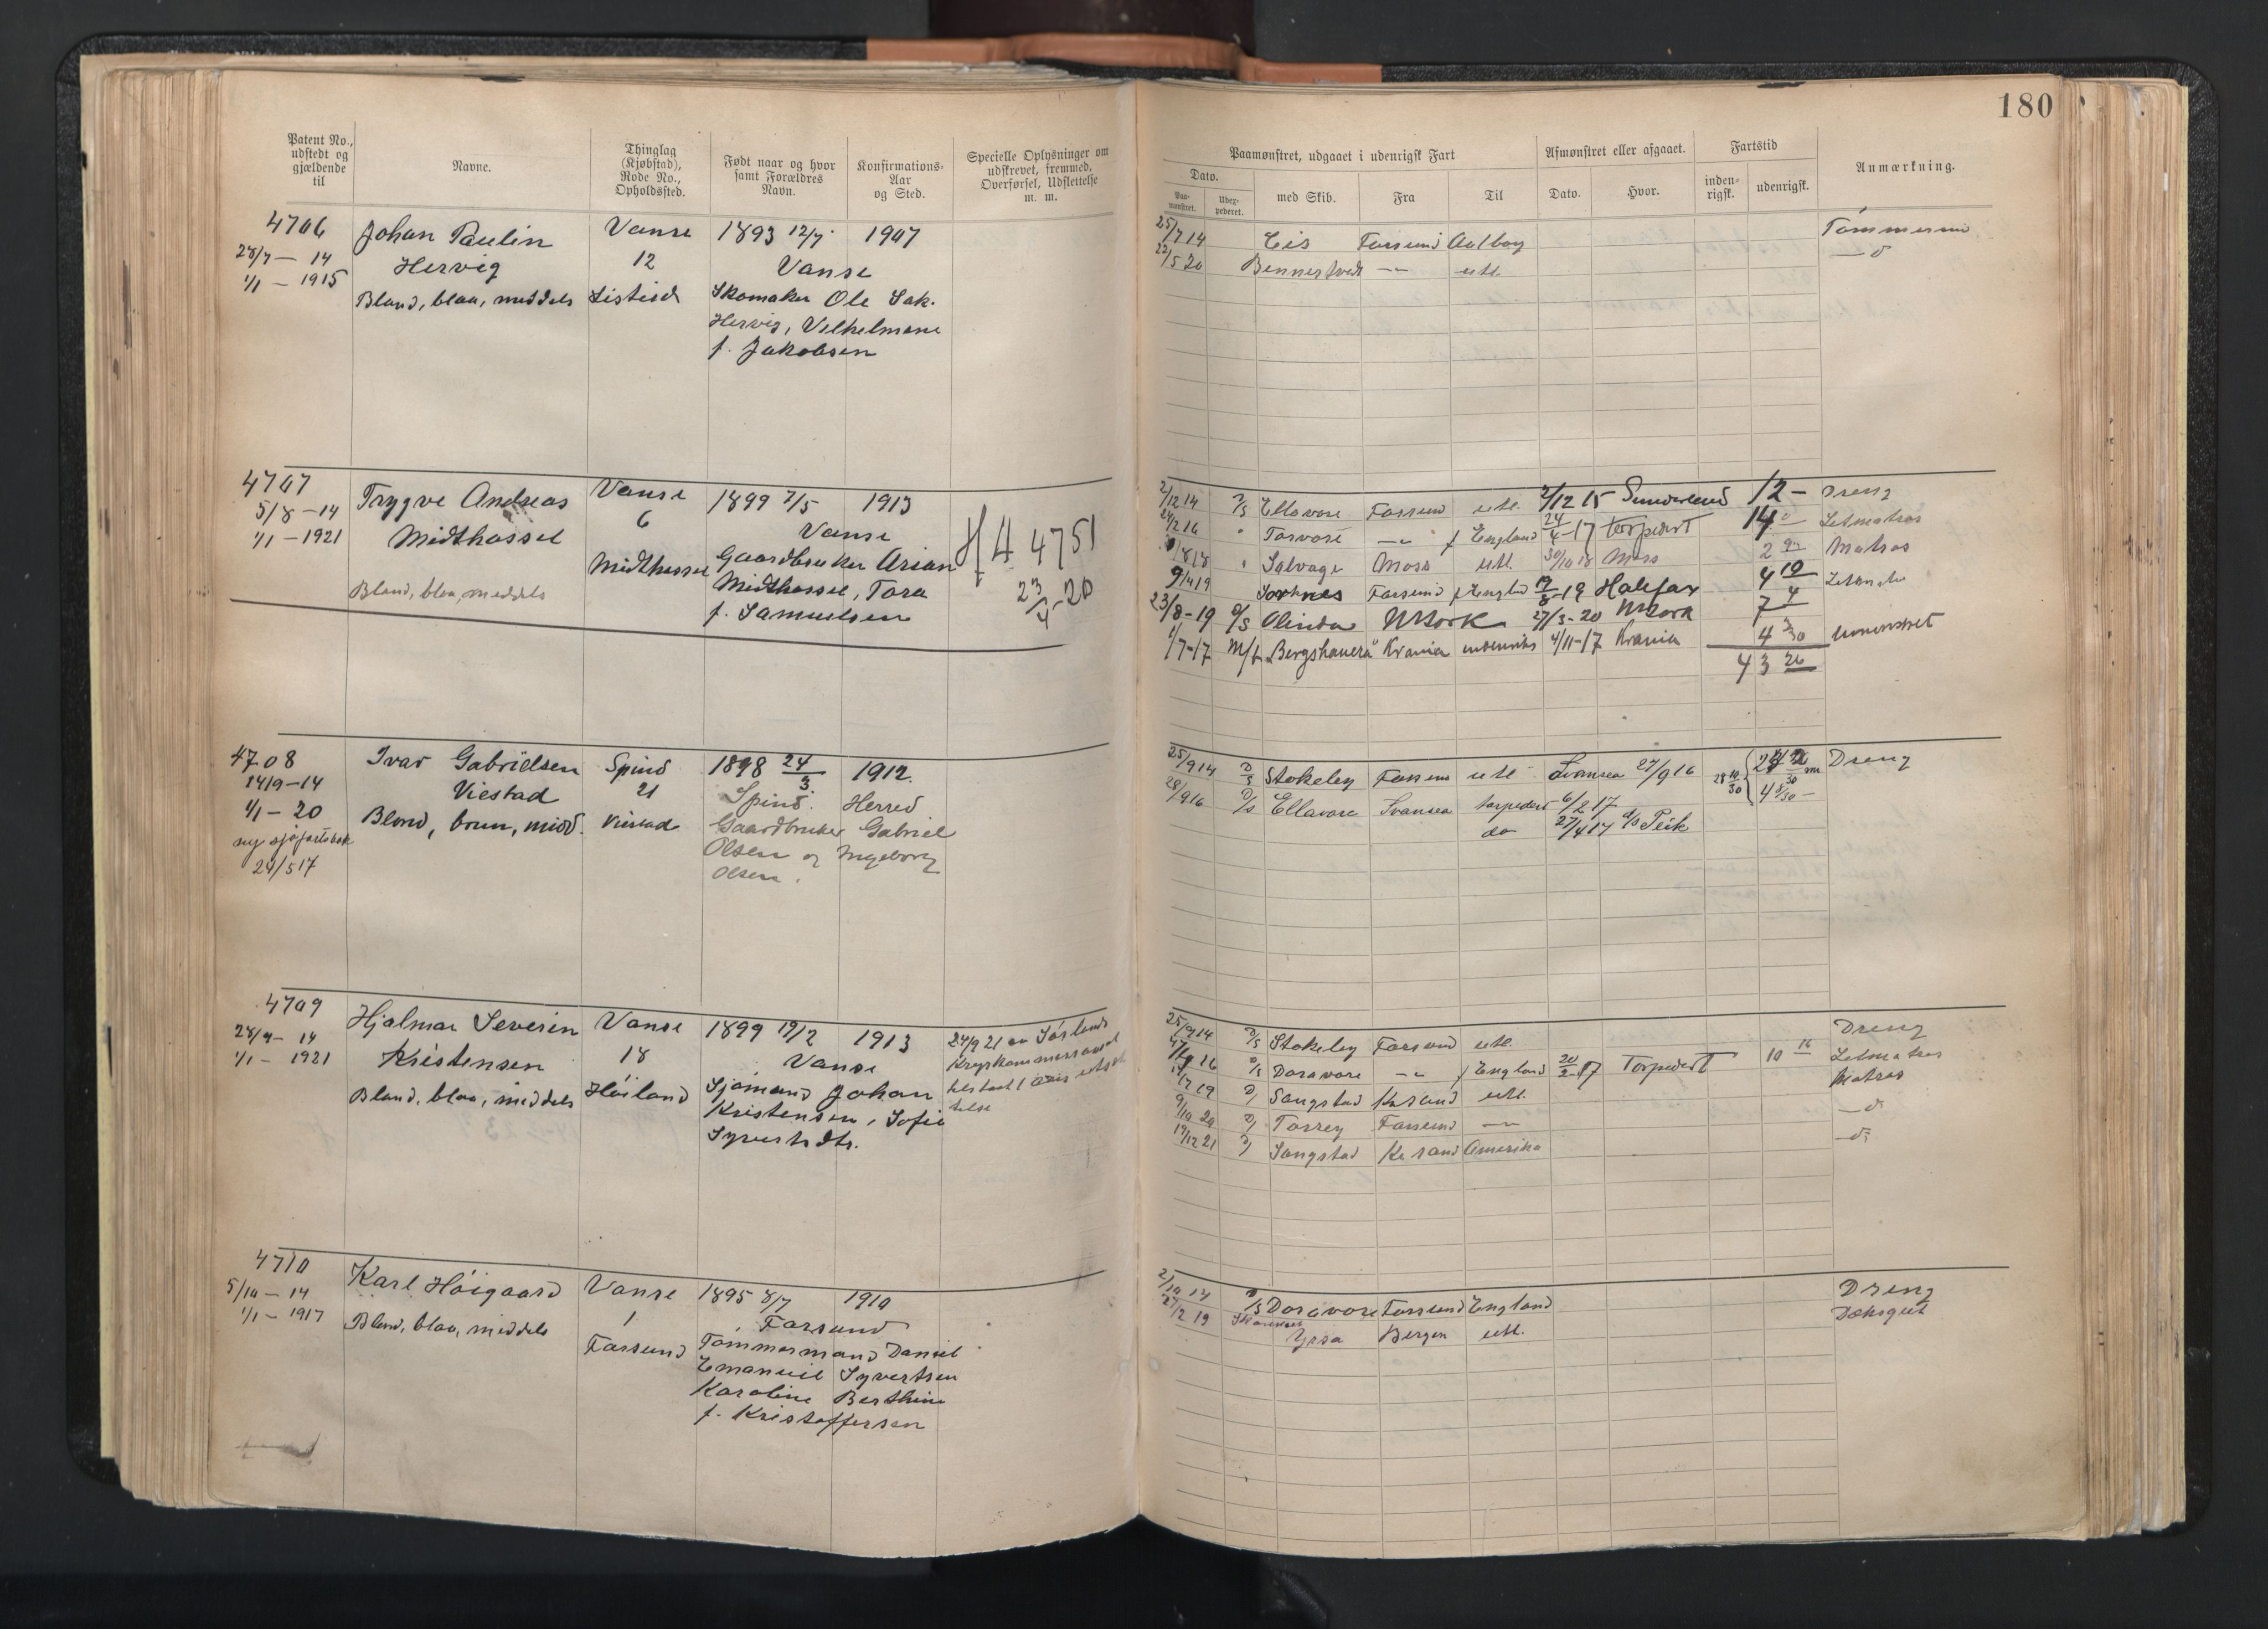 180
Patent No., udstedt og gjældende til
Navne.
Thinglag (Kjøbstad), Rode No., Opholdssted.
Født naar og hvor samt Forældres Navn.
Konfirmations-Aar og Sted.
Specielle Oplysninger om udskrevet, fremmed, Overførsel, Udslettelse m. m.
Paamønstret, udgaaet i udenrigsk Fart
Afmønstret eller afgaaet.
Fartstid
Anmærkning.
Dato.
Paa-mønstret.
med Skib.
Fra
Til
Dato.
Hvor.
inden-rigsk.
udenrigsk.
4706 Johan Paulin Vanse 1893 12/7 1907
28/7 - 14 Hervig 12 Vanse
1/1 - 1915 Blond, blaa, middels
Skomaker Ole Jak.
Hervig, Vilhelmine
f. Jakobsen
25/7 14 Eis Farsund Aalborg
22/5 20 -"- utl.
4707 Trygve Andreas Vanse 1899 7/5 1913
5/8 - 14 Midthassel 6 Vanse
1/1 - 1921 Midthassel Gaardbruker Arian
Blond, blaa, middels Midthassel, Tora
f. Samuelsen
4751
23/4-20
2/12 14 D/S Ellavore Farsund utl. 2/12 15 Sunderland 12 - Dreng
Torvore -"- England 24/4-17 torpedert 14 Letmatros
Salvage Moss utl. 30/10 18 Moss Matros
Farsund Halifax 4 10
23/8-19 Olinda 27/3-20 7 4
1/7-17 M/S "Bergehauera" Krania 4/11-17 Krania 4 3/30
43 26
4708 Ivar Gabrielsen Spind 1898 24/3 1912.
14/9-14 Viestad 21 Spind. Herred
1/1 - 20 Blond, brun, midd. Viestad Gaardbruker Gabriel
ny sjøfartsbok Olsen og Ingeborg
24/5 17 Olsen.
25/9 14 D/S Stokeley Farsund utl Svansea 27/9 16 Dreng
28/9 16 D/S Ellavore Svansea torpedert 6/2 17
do 27/4 17 d/s Peik
4709 Hjalmar Severin Vanse 1899 19/2 1913
28/9 - 14 Kristensen 18 Vanse
1/1 - 1921 Blond, blaa, middels Høiland Sjømand Johan
Kristensen, Sofie
Syvertsdtr.
24/9 21 av Sørlands
25/9 14 D/S Stokeley Farsund utl. Dreng
D/S Doravore -"- England 20/2-17 Torpedert 10 16 Letmatros
Songstad Krsand utl. Matros
Torrey Farsund -"- -d-
19/12 21 Songstad Krsand Amerika -d-
4710 Karl Høigaard Vanse 1895 8/7 1910
5/10 - 14 1 Farsund
1/1 - 1917 Blond, blaa, middels Farsund Tømmermand Daniel
Emanuel Syvertsen
Karoline Berthine
f. Kristoffersen
2/10 14 D/S Doravore Farsund England Dreng
27/2 19 Yrsa Bergen utl. Dæksgut